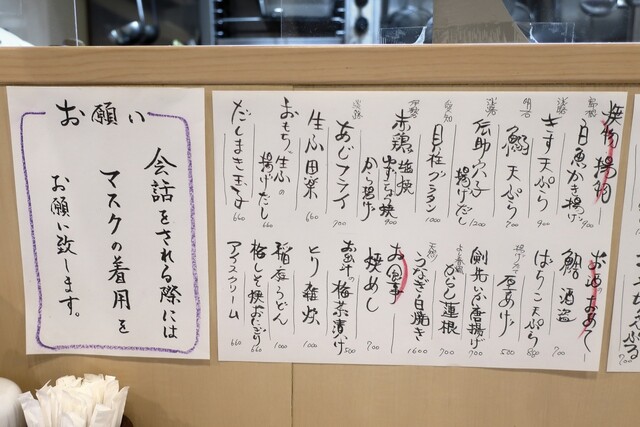 お願い
会話をされる際には
マスクの着用を
お願い致します。
焼物 揚物
島根 白魚かき揚げ 900
淡路 きす天ぷら 900
明石 鯛天ぷら
淡路 伝助穴子
揚げだし 1200
愛知 貝柱グラタン 1000
赤鶏塩焼
から揚げ 900
淡路 あじフライ 700
生ふ田楽 660
おもちと生ふの
揚げだし 660
だしまき玉子 660
お酒のあて
鯛酒盗 700
はちこ天ぷら 800
揚げたて 厚あげ 500
剣先いか唐揚げ 700
からし蓮根 700
うなぎ白焼き 1600
お食事
焼めし 700
お出汁の梅茶漬け 500
とり雑炊 1000
稲庭うどん 1000
梅しそ焼おにぎり 660
アイスクリーム 660